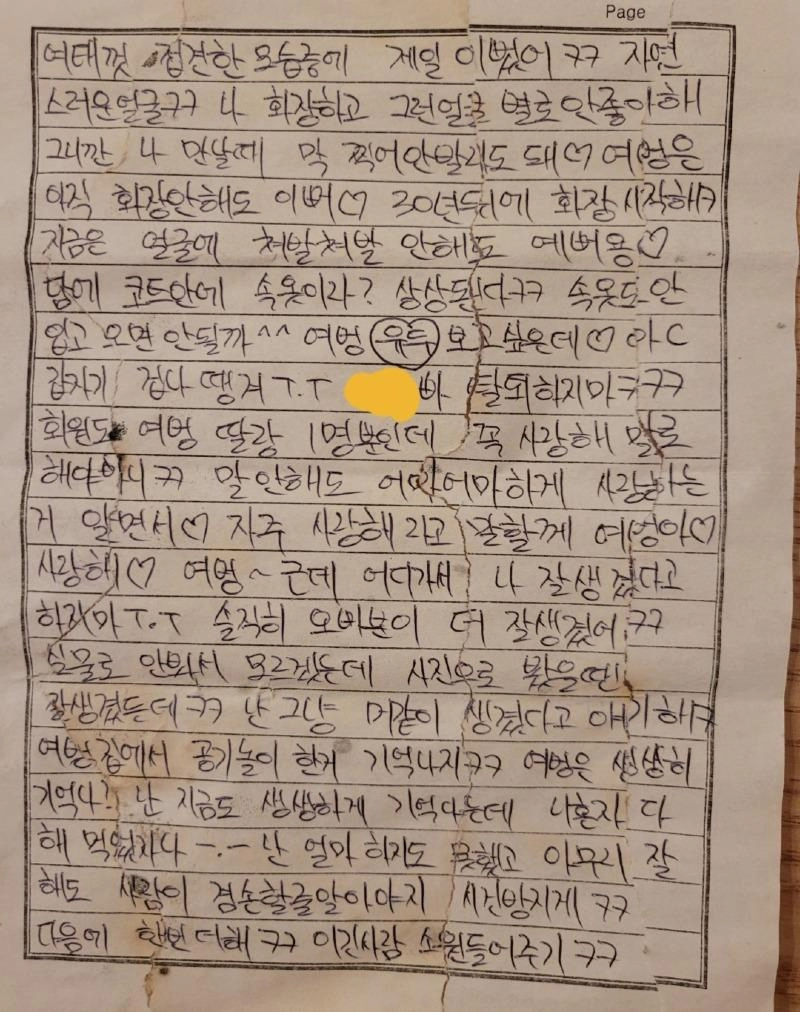 Page
여태껏 접견한 모습중에 제일 이뻤어 ㅋㅋ 자연
스러운얼굴ㅋㅋ 나 화장하고 그런얼굴 별로 안좋아해
그니깐 나 만날때 막 찍어안발라도 돼♡ 여벙은
아직 화장안해도 이뻐♡ 30년뒤에 화장 시작해ㅋ
지금은 얼굴에 쳐발쳐발 안해도 예뻐용♡
담에 코트안에 속옷이라? 상상된다ㅋㅋ 속옷도 안
입고 오면 안될까^^ 여벙 유독 보고싶은데♡ 아
갑자기 겁나 땡겨 T.T 빠 탈퇴하지마ㅋㅋㅋ
회원도 여벙 딸랑 1명뿐인데 꼭 사랑해 말로
해야아니 ㅋㅋ 말 안해도 어마어마하게 사랑하는
거 알면서♡ 자주 사랑해 라고 말할께 여벙아♡
사랑해♡ 여벙~ 근데 어디가서 나 잘생겼다고
하지마 T.T 솔직히 오빠분이 더 잘생겼어 ㅋㅋ
실물로 안봐서 모르겠는데 사진으로 봤을땐
잘생겼든데 ㅋㅋ 난 그냥 머같이 생겼다고 얘기해ㅋ
여벙집에서 공기놀이 한거 기억나지ㅋㅋ 여벙은 생생히
기억나? 난 지금도 생생하게 기억나는데 나혼자 다
해 먹었자나 -.- 난 얼마 하지도 못했고 아무리 잘
해도 사람이 겸손할줄알아야지 시건방지게 ㅋㅋ
다음에 한번 더해 ㅋㅋ 이긴사람 소원들어주기 ㅋㅋ